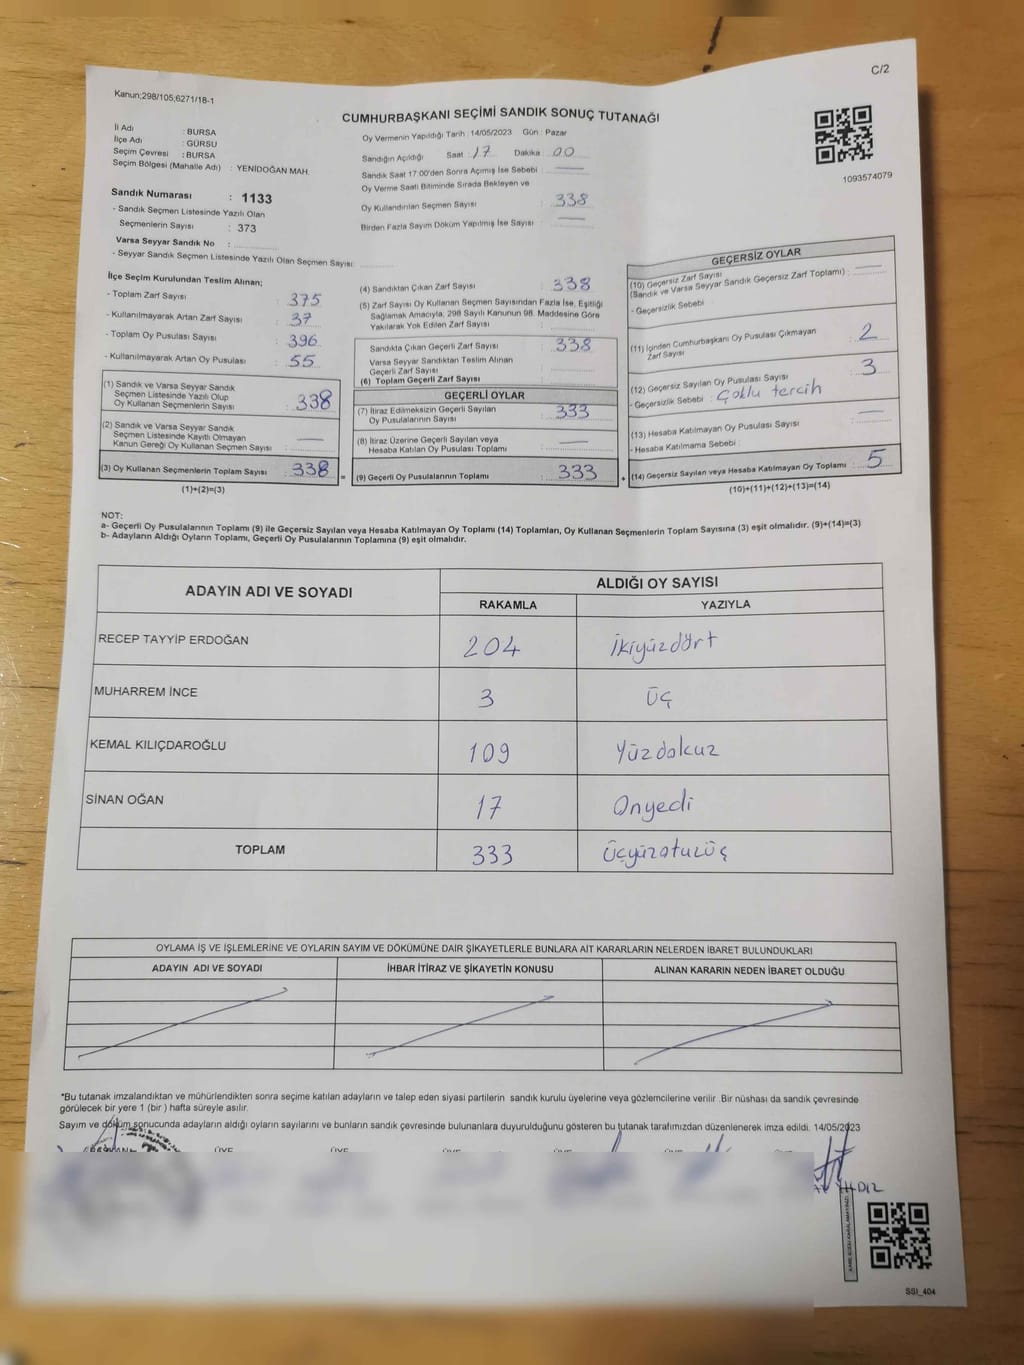 C/2
Kanun;298/105;6271/18-1
CUMHURBAŞKANI SEÇİMİ SANDIK SONUÇ TUTANAĞI
İl Adı : BURSA
İlçe Adı : GÜRSU
Seçim Çevresi : BURSA
Seçim Bölgesi (Mahalle Adı) : YENİDOĞAN MAH.
Sandık Numarası : 1133
- Sandık Seçmen Listesinde Yazılı Olan
Seçmenlerin Sayısı : 373
Varsa Seyyar Sandık No :
- Seyyar Sandık Seçmen Listesinde Yazılı Olan Seçmen Sayısı :
Oy Vermenin Yapıldığı Tarih : 14/05/2023 Gün : Pazar
Sandığın Açıldığı Saat : 17 Dakika : 00
Sandık Saat 17:00'den Sonra Açımış İse Sebebi :
Oy Verme Saati Bitiminde Sırada Bekleyen ve
Oy Kullandırılan Seçmen Sayısı : 338
Birden Fazla Sayım Döküm Yapılmış İse Sayısı :
1093574079
İlçe Seçim Kurulundan Teslim Alınan;
- Toplam Zarf Sayısı : 375
- Kullanılmayarak Artan Zarf Sayısı : 37
- Toplam Oy Pusulası Sayısı : 396
- Kullanılmayarak Artan Oy Pusulası : 55
(1) Sandık ve Varsa Seyyar Sandık
Seçmen Listesinde Yazılı Olup
Oy Kullanan Seçmenlerin Sayısı : 338
(2) Sandık ve Varsa Seyyar Sandık
Seçmen Listesinde Kayıtlı Olmayan
Kanun Gereği Oy Kullanan Seçmen Sayısı :
(3) Oy Kullanan Seçmenlerin Toplam Sayısı : 338
(1)+(2)=(3)
(4) Sandıktan Çıkan Zarf Sayısı : 338
(5) Zarf Sayısı Oy Kullanan Seçmen Sayısından Fazla İse, Eşitliği
Sağlamak Amacıyla, 298 Sayılı Kanunun 98. Maddesine Göre
Yakılarak Yok Edilen Zarf Sayısı :
Sandıkta Çıkan Geçerli Zarf Sayısı : 338
Varsa Seyyar Sandıktan Teslim Alınan
Geçerli Zarf Sayısı :
(6) Toplam Geçerli Zarf Sayısı :
GEÇERLİ OYLAR
(7) İtiraz Edilmeksizin Geçerli Sayılan
Oy Pusulalarının Sayısı : 333
(8) İtiraz Üzerine Geçerli Sayılan veya
Hesaba Katılan Oy Pusulası Toplamı :
(9) Geçerli Oy Pusulalarının Toplamı : 333
GEÇERSİZ OYLAR
(10) Geçersiz Zarf Sayısı
(Sandık ve Varsa Seyyar Sandık Geçersiz Zarf Toplamı) :
- Geçersizlik Sebebi :
(11) İçinden Cumhurbaşkanı Oy Pusulası Çıkmayan
Zarf Sayısı : 2
(12) Geçersiz Sayılan Oy Pusulası Sayısı : 3
- Geçersizlik Sebebi : Çoklu tercih
(13) Hesaba Katılmayan Oy Pusulası Sayısı :
- Hesaba Katılmama Sebebi :
(14) Geçersiz Sayılan veya Hesaba Katılmayan Oy Toplamı : 5
(10)+(11)+(12)+(13)=(14)
NOT:
a- Geçerli Oy Pusulalarının Toplamı (9) ile Geçersiz Sayılan veya Hesaba Katılmayan Oy Toplamı (14) Toplamları, Oy Kullanan Seçmenlerin Toplam Sayısına (3) eşit olmalıdır. (9)+(14)=(3)
b- Adayların Aldığı Oyların Toplamı, Geçerli Oy Pusulalarının Toplamına (9) eşit olmalıdır.
ADAYIN ADI VE SOYADI ALDIĞI OY SAYISI
RAKAMLA YAZIYLA
RECEP TAYYİP ERDOĞAN 204 İkiyüzdört
MUHARREM İNCE 3 Üç
KEMAL KILIÇDAROĞLU 109 Yüzdokuz
SİNAN OĞAN 17 Onyedi
TOPLAM 333 Üçyüzotuzüç
OYLAMA İŞ VE İŞLEMLERİNE VE OYLARIN SAYIM VE DÖKÜMÜNE DAİR ŞİKAYETLERLE BUNLARA AİT KARARLARIN NELERDEN İBARET BULUNDUKLARI
ADAYIN ADI VE SOYADI İHBAR İTİRAZ VE ŞİKAYETİN KONUSU ALINAN KARARIN NEDEN İBARET OLDUĞU
*Bu tutanak imzalandıktan ve mühürlendikten sonra seçime katılan adayların ve talep eden siyasi partilerin sandık kurulu üyelerine veya gözlemcilerine verilir .Bir nüshası da sandık çevresinde
görülecek bir yere 1 (bir ) hafta süreyle asılır.
Sayım ve döküm sonucunda adayların aldığı oyların sayılarını ve bunların sandık çevresinde bulunanlara duyurulduğunu gösteren bu tutanak tarafımızdan düzenlenerek imza edildi. 14/05/2023
SSI_404